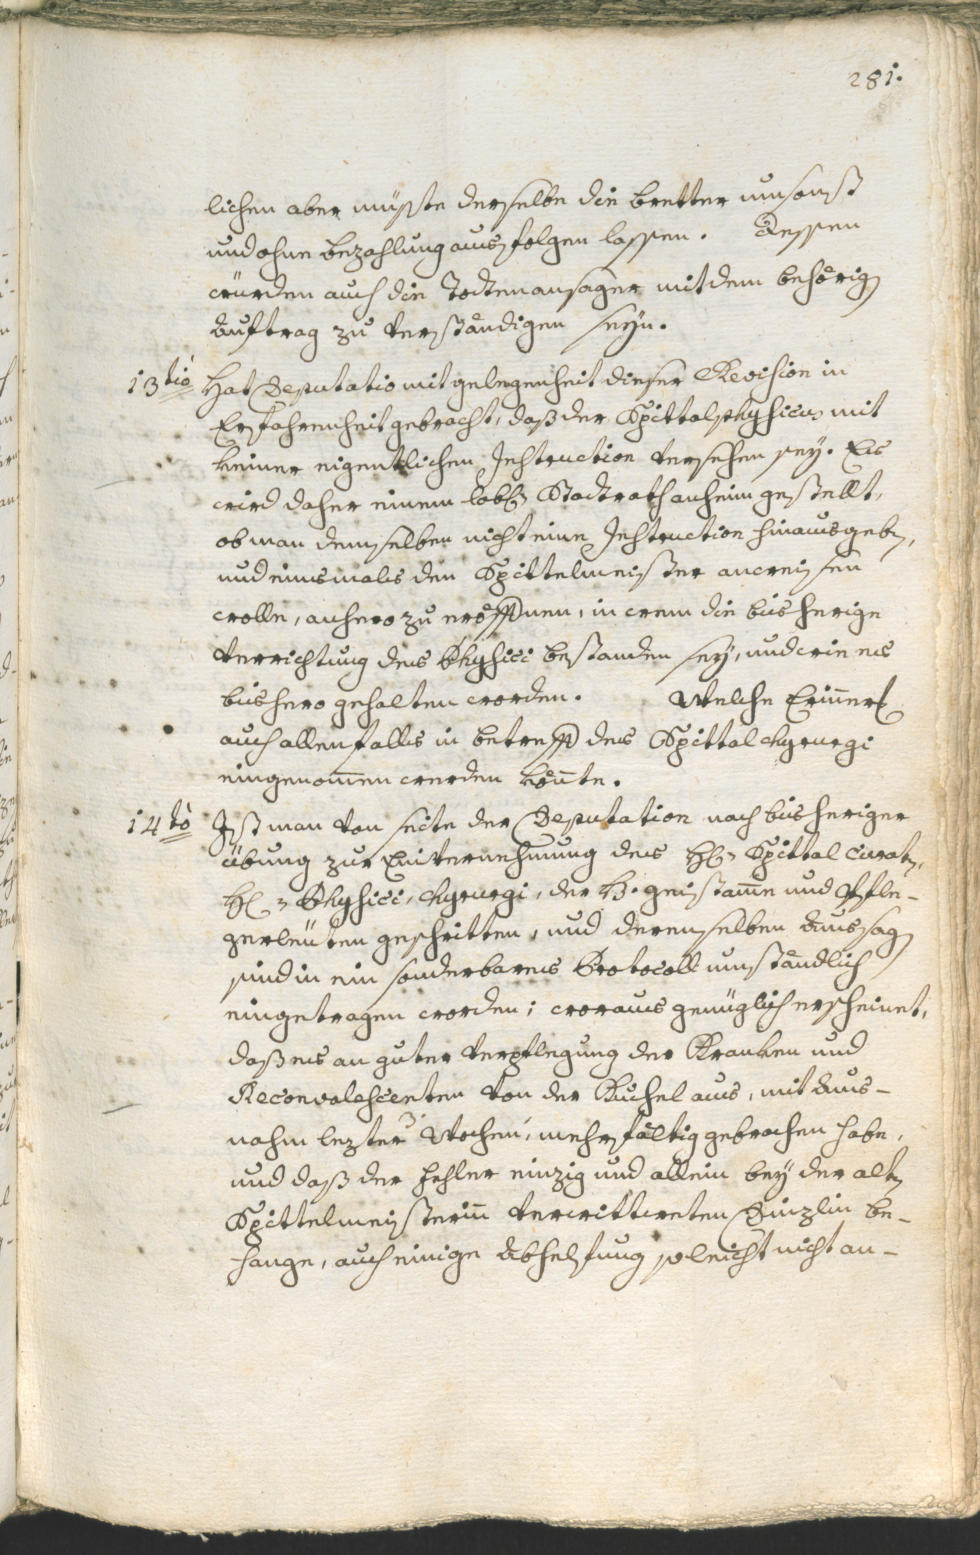 281.
lichen aber müsste derselbe die bretter umsonst
und ohne bezahlung ausfolgen lassen. Dessen
würden auch die Todtenansager mit dem behörig
auftrag zu verständigen seyn.
13tio Hat Deputatio mit gelegenheit dieser Revision in
Erfahrenheit gebracht, daß der Spittalphysicus mit
keiner eigentlichen Instruction versehen sey. Es
wird daher einem lobl Stadtrath anheim gestellt,
ob man demselben nicht eine Instruction hinausgeben,
und einsmals den Spittelmeister anweisen
wolle, anhero zu eröffnen, in wem die bisherige
verrichtung des Physici bestanden sey, und wie es
bishero gehalten worden. Welche Erinner
auch allenfalls in betreff des Spittalchyrurgi
eingenommen werden könnte.
14to Ist man von seite der Deputation nach bisheriger
übung zur Einvernehmung des H Spittal Curaten,
H Physici, Chyrurgi, der H. geistame und Pfle-
gersleüten geschritten, und derenselben aussag
sind in ein sonderbares Protocoll umständlich
eingetragen worden; woraus genüglich erscheinet,
daß es an guter verpflegung der Kranken und
Reconvalescenten von der Kuchel aus, mit aus-
nahm lezter 3 Wochen, mehrfältig gebrochen habe,
und daß der fehler einzig und allein bey der alten
Spittelmeisterinn verwittweten Dinzlin be-
hange, auch einige abhelfung so leicht nicht an-